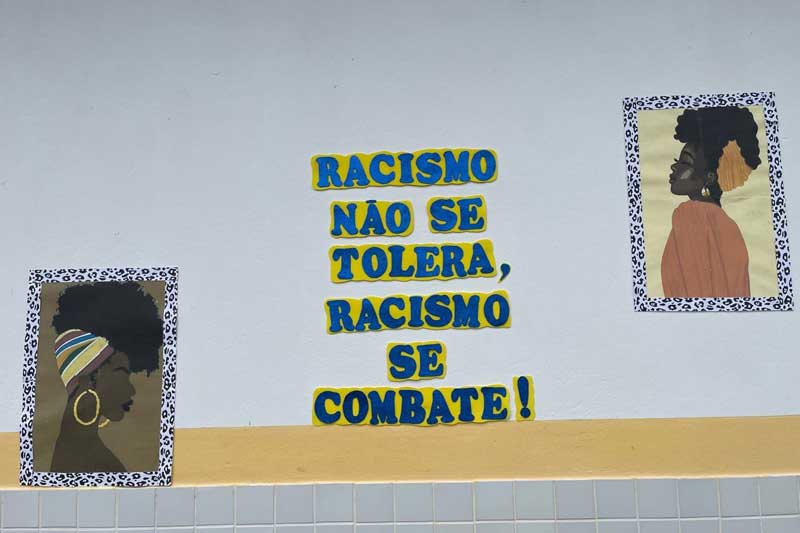 RACISMO
NÃO SE
TOLERA,
RACISMO
SE
COMBATE!